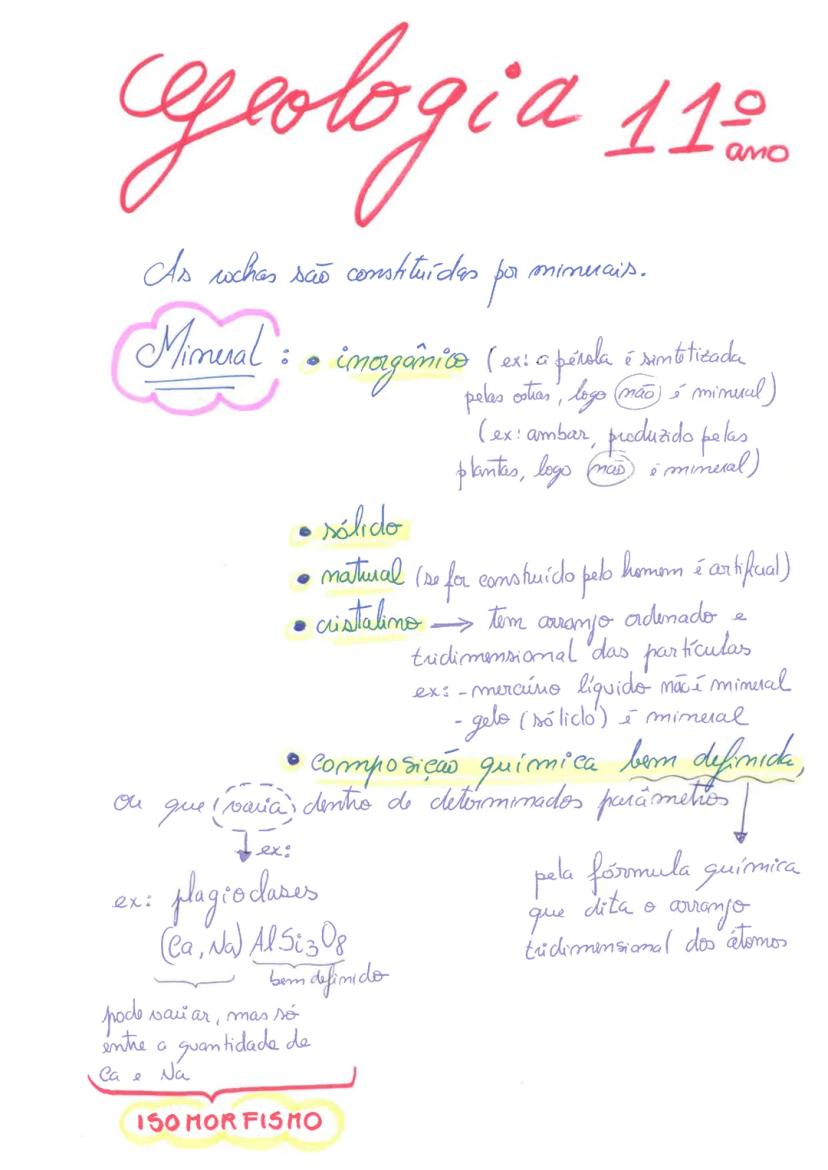 Geologia 11º
ano
As rochas são constituídas por minerais.
Mineral : • inorgânico (ex: a pérola é sintetizada
pelas ostras, logo não é mineral)
(ex: ambar, produzido pelas
plantas, logo não é mineral)
• sólido
• natural (se for construído pelo homem é artificial)
• cristalino → tem arranjo ordenado e
tridimensional das partículas
ex: - mercúrio líquido não é mineral
- gelo (sólido) é mineral
• composição química bem definida,
ou que varia dentro de determinados parâmetros
ex:
ex: plagioclases
(Ca, Na) AlSi3O8
bem definido
pode variar, mas só
entre a quantidade de
Ca e Na
ISOMORFISMO
pela fórmula química
que dita o arranjo
tridimensional dos átomos